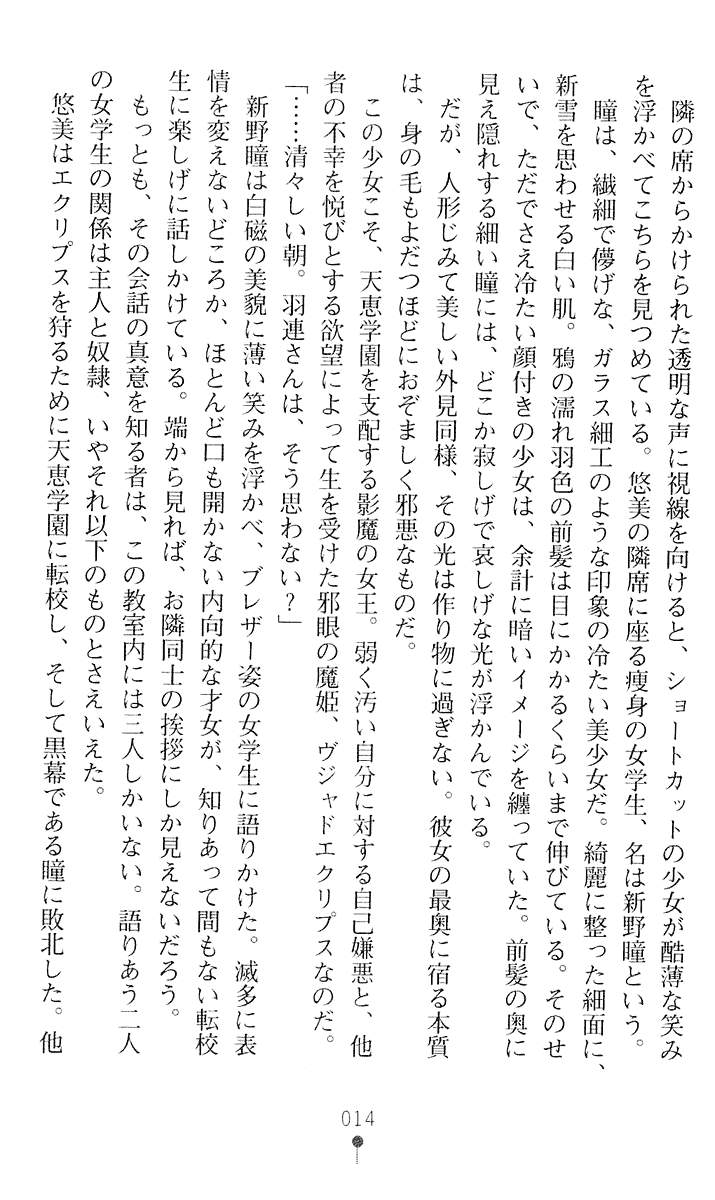 隣の席からかけられた透明な声に視線を向けると、ショートカットの少女が酷薄な笑み
を浮かべてこちらを見つめている。悠美の隣席に座る痩身の女学生、名は新野瞳という。
瞳は、繊細で儚げな、ガラス細工のような印象の冷たい美少女だ。綺麗に整った細面に、
新雪を思わせる白い肌。鴉の濡れ羽色の前髪は目にかかるくらいまで伸びている。そのせ
いで、ただでさえ冷たい顔付きの少女は、余計に暗いイメージを纏っていた。前髪の奥に
見え隠れする細い瞳には、どこか寂しげで哀しげな光が浮かんでいる。
だが、人形じみて美しい外見同様、その光は作り物に過ぎない。彼女の最奥に宿る本質
は、身の毛もよだつほどにおぞましく邪悪なものだ。
この少女こそ、天恵学園を支配する影魔の女王。弱く汚い自分に対する自己嫌悪と、他
者の不幸を悦びとする欲望によって生を受けた邪眼の魔姫、ヴジャドエクリプスなのだ。
「……清々しい朝。羽連さんは、そう思わない？」
新野瞳は白磁の美貌に薄い笑みを浮かべ、ブレザー姿の女学生に語りかけた。滅多に表
情を変えないどころか、ほとんど口も開かない内向的な才女が、知りあって間もない転校
生に楽しげに話しかけている。端から見れば、お隣同士の挨拶にしか見えないだろう。
もっとも、その会話の真意を知る者は、この教室内には三人しかいない。語りあう二人
の女学生の関係は主人と奴隷、いやそれ以下のものとさえいえた。
悠美はエクリプスを狩るために天恵学園に転校し、そして黒幕である瞳に敗北した。他
014